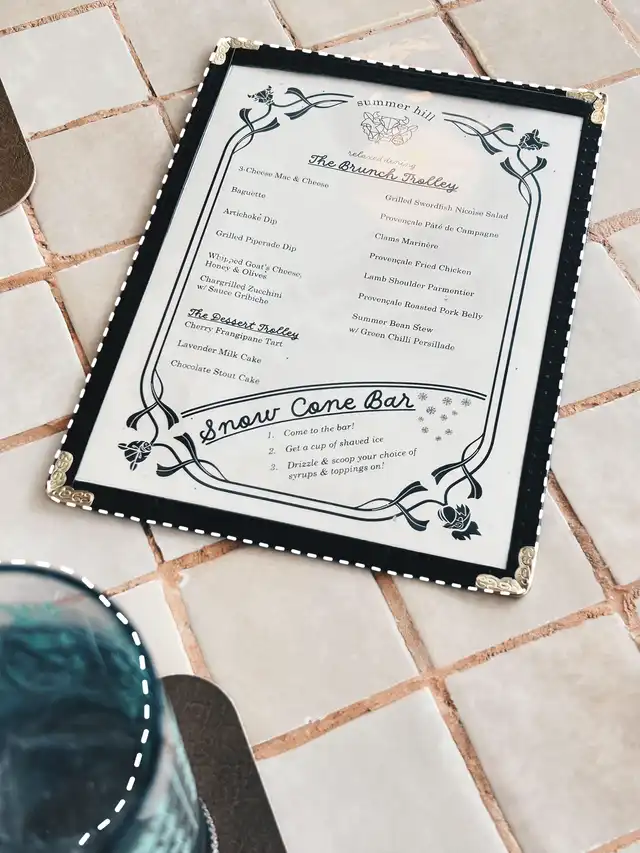 summer hill
relaxed dining
The Brunch Trolley
3-Cheese Mac & Cheese
Baguette
Artichoke Dip
Grilled Piperade Dip
Whipped Goat's Cheese,
Honey & Olives
Chargrilled Zucchini
w/ Sauce Gribiche
Grilled Swordfish Nicoise Salad
Provençale Pâté de Campagne
Clams Marinère
Provençale Fried Chicken
Lamb Shoulder Parmentier
Provençale Roasted Pork Belly
Summer Bean Stew
w/ Green Chilli Persillade
The Dessert Trolley
Cherry Frangipane Tart
Lavender Milk Cake
Chocolate Stout Cake
Snow Cone Bar
1. Come to the bar!
2. Get a cup of shaved ice
3. Drizzle & scoop your choice of
syrups & toppings on!